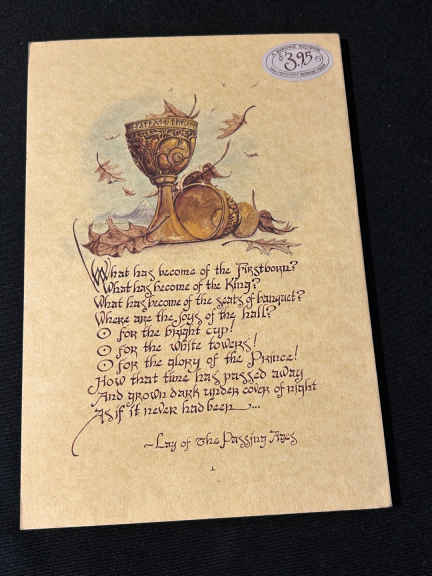 3.95
What has become of the Firstborn?
What has become of the King?
What has become of the seats of banquet?
Where are the joys of the hall?
O for the bright cup!
O for the white towers!
O for the glory of the Prince!
How that time has passed away
And grown dark under cover of night
As if it never had been...
~Lay of the Passing Ages